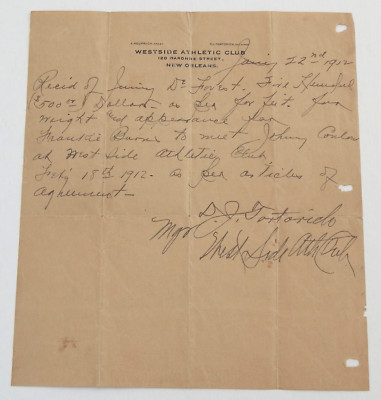 WESTSIDE ATHLETIC CLUB
NEW ORLEANS.
Jan'y 22nd 1912
Rec'd of Jimmy De Forest, Five Hundred
$500.00 Dollars as per for feit for
weight and appearance for
Frankie Burns to meet Johnny Coulon
at West Side Athletic Club
Feb'y 18th 1912. as per articles of
agreement—
D. J. Tortorich
Mgr West Side Ath Club